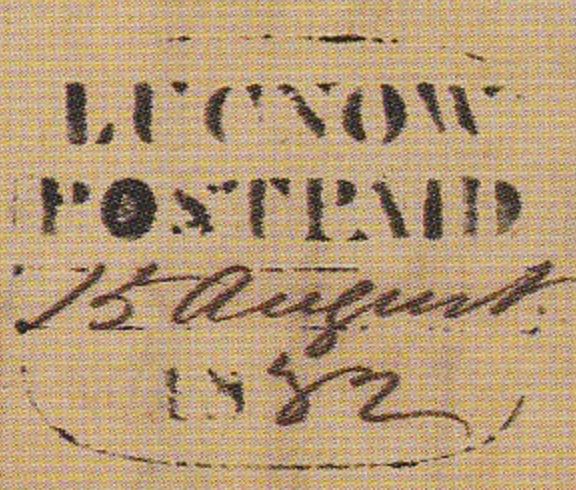 LUCNOW
POSTPAID
15 August
1832